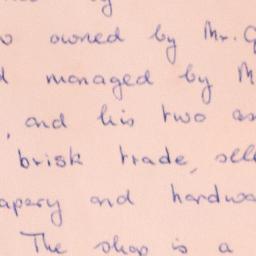 owned by Mr. G
managed by M
, and his two as
brisk trade, sell
apery and hardwa
The shop is a